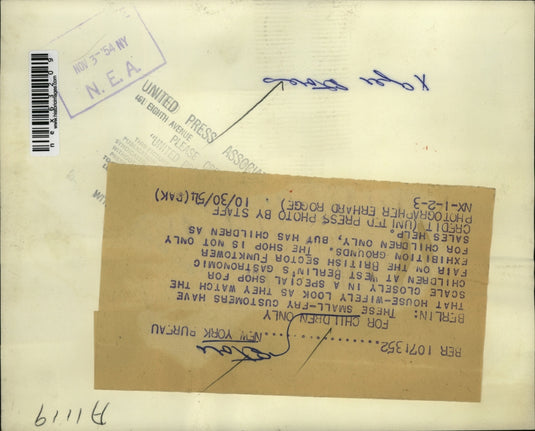 BER 1071352..............NEW YORK BUREAU
FOR CHILDREN ONLY
BERLIN: THESE SMALL-FRY CUSTOMERS HAVE
THAT HOUSE-WIFELY LOOK AS THEY WATCH THE
SCALE CLOSELY IN A SPECIAL SHOP FOR
CHILDREN AT WEST BERLIN'S GASTRONOMIC
FAIR ON THE BRITISH SECTOR FUNKTOWER
EXHIBITION GROUNDS. THE SHOP IS NOT ONLY
FOR CHILDREN ONLY, BUT HAS CHILDREN AS
SALES HELP.
CREDIT (UNITED PRESS PHOTO BY STAFF
PHOTOGRAPHER ERHARD ROGGE) 10/30/54 (BAK)
NX-1-2-3
NOV 3-'54 NY
N. E. A.
UNITED PRESS ASSOCIA
461 EIGHTH AVENUE
PLEASE
"UNITED
A1119